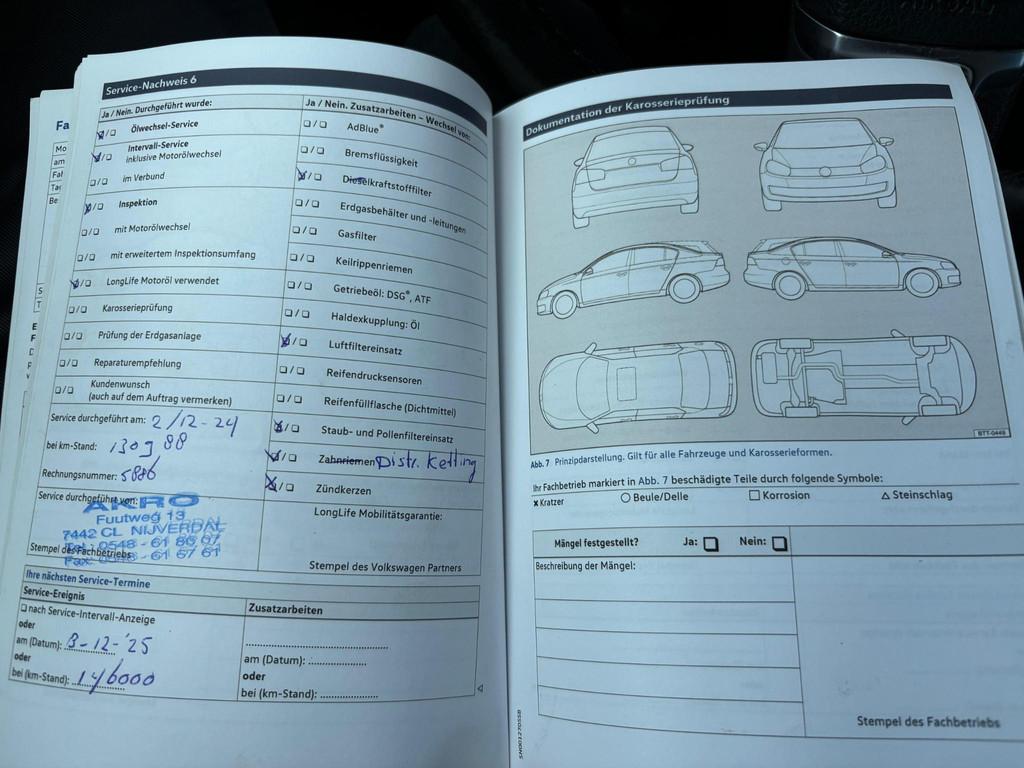 Fa
Mo
am
Service-Nachweis 6
Ja / Nein. Durchgeführt wurde:
Ölwechsel-Service
Intervall-Service
inklusive Motorölwechsel
im Verbund
Inspektion
mit Motorölwechsel
mit erweitertem Inspektionsumfang
LongLife Motoröl verwendet
Karosserieprüfung
Prüfung der Erdgasanlage
Reparaturempfehlung
Kundenwunsch
(auch auf dem Auftrag vermerken)
Service durchgeführt am: 2/12-24
bei km-Stand: 130988
Rechnungsnummer: 5886
Service durchgeführt von:
AKRO
Fuutweg 13
7442 CL NIJVERDAL
Tel: 0548 - 61 86 07
Fax: 0548 - 61 57 61
Stempel des Fachbetriebs
Ja / Nein. Zusatzarbeiten – Wechsel von:
AdBlue®
Bremsflüssigkeit
Dieselkraftstofffilter
Erdgasbehälter und -leitungen
Gasfilter
Keilrippenriemen
Getriebeöl: DSG®, ATF
Haldexkupplung: Öl
Luftfiltereinsatz
Reifendrucksensoren
Reifenfüllflasche (Dichtmittel)
Staub- und Pollenfiltereinsatz
Zahnriemen Distr. Ketting
Zündkerzen
LongLife Mobilitätsgarantie:
Stempel des Volkswagen Partners
Ihre nächsten Service-Termine
Service-Ereignis
nach Service-Intervall-Anzeige
oder
am (Datum): 3-12-'25
oder
bei (km-Stand): 146000
Zusatzarbeiten
am (Datum):
oder
bei (km-Stand):
Dokumentation der Karosserieprüfung
BTT-0449
Abb. 7 Prinzipdarstellung. Gilt für alle Fahrzeuge und Karosserieformen.
Ihr Fachbetrieb markiert in Abb. 7 beschädigte Teile durch folgende Symbole:
x Kratzer
○ Beule/Delle
□ Korrosion
△ Steinschlag
Mängel festgestellt? Ja: Nein:
Beschreibung der Mängel:
Stempel des Fachbetriebs